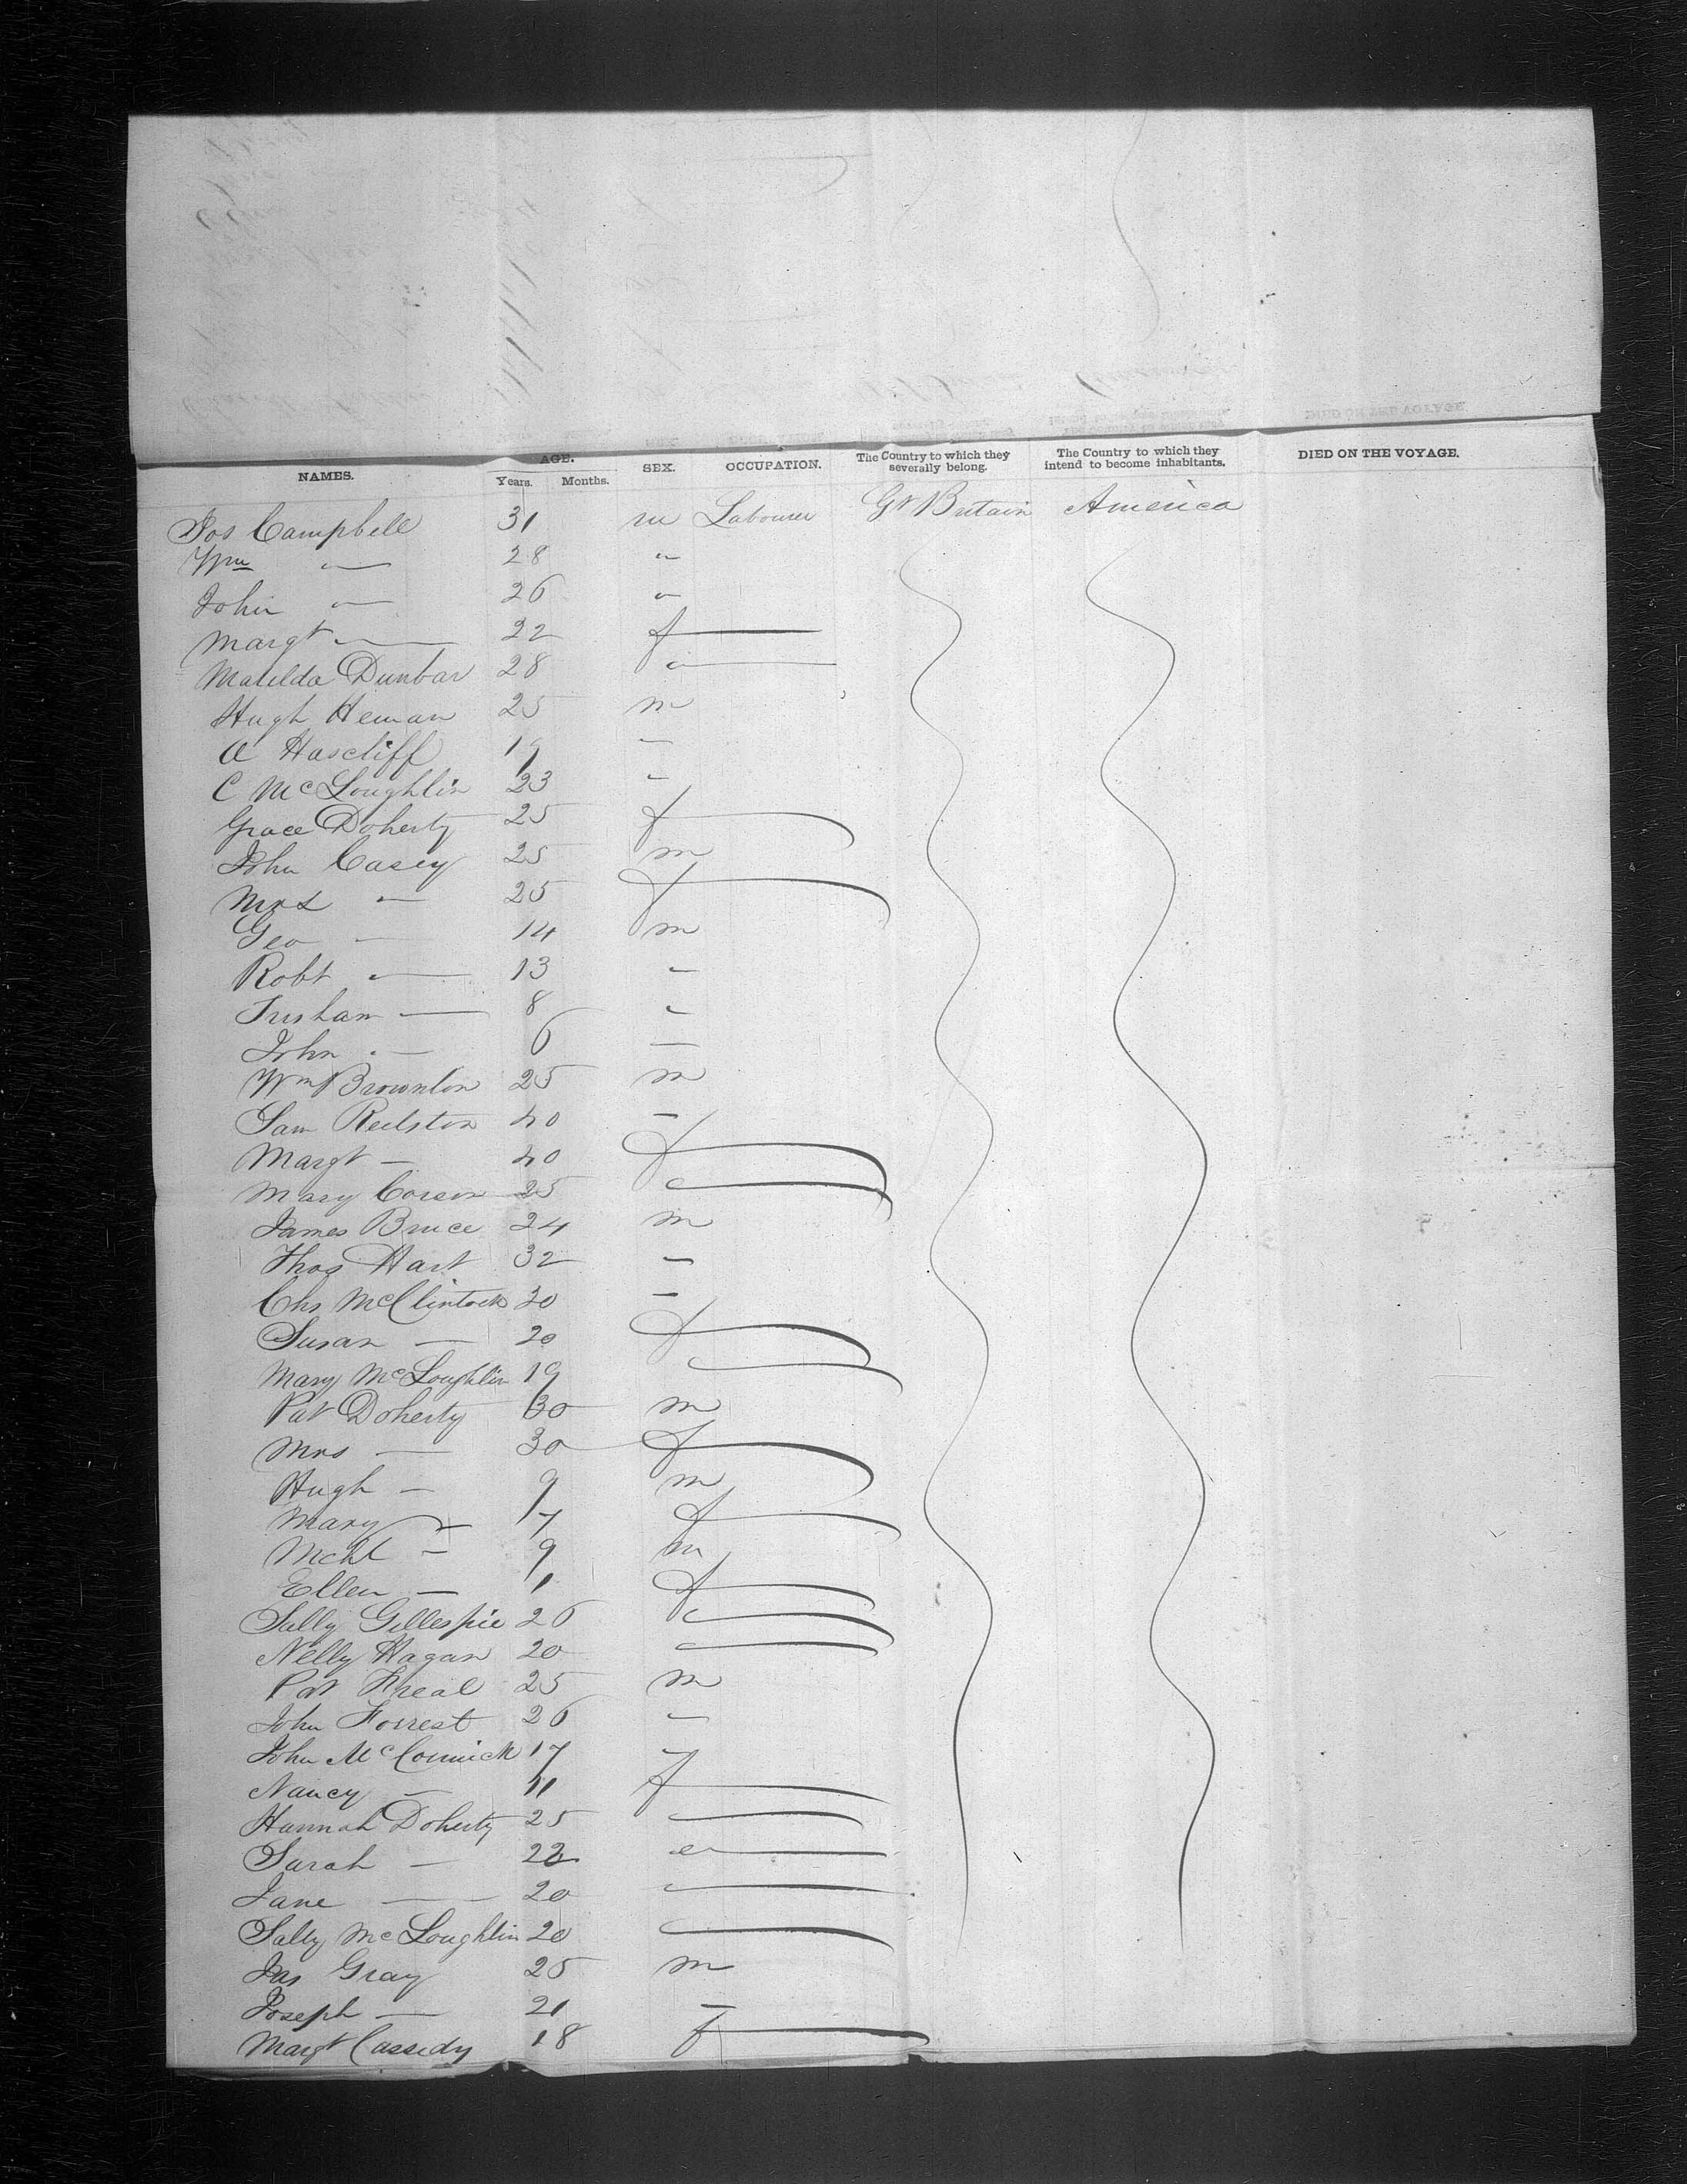 NAMES. AGE. Years. Months. SEX. OCCUPATION. The Country to which they severally belong. The Country to which they intend to become inhabitants. DIED ON THE VOYAGE.
Jos Campbell 31 m Labourer Gt Britain America
Wm " 28 "
John " 26 "
Margt " 22 f
Matilda Dunbar 28 "
Hugh Heman 25 m
A Hascliff 19 "
C McLoughlin 23 "
Grace Doherty 25 f
John Casey 25 m
Mrs " 25 f
Geo — 14 m
Robt " 13 "
8 "
John " 6 —
Wm Brownlow 25 m
Sam 40 —
Margt — 40 f
Mary 25 "
James Bruce 24 m
Thos Hart 32 —
Chs McClintock 20 —
Susan — 20 f
Mary McLoughlin 19 "
Pat Doherty 30 m
Mrs — 30 f
Hugh — 9 m
Mary — 17 f
Mchl — 9 m
Ellen — 1 f
Sally Gillespie 26 "
Nelly Hagan 20 "
Pat Freal 25 m
John Forrest 26 —
John McCormick 17 —
Nancy — 11 f
Hannah Doherty 25 "
Sarah — 22 "
Jane — 20 "
Sally McLoughlin 20 "
Jas Gray 25 m
Joseph — 21 —
Margt Cassidy 18 f